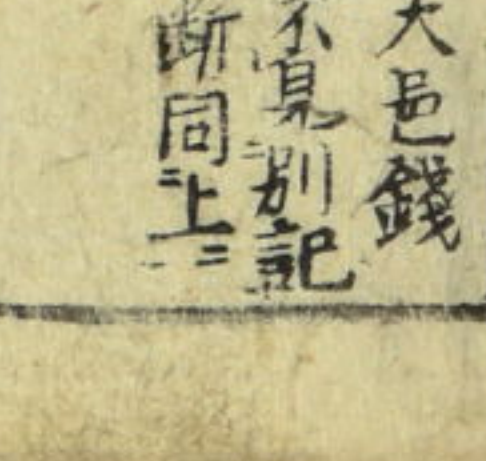 大邑錢
不見別記
断同上